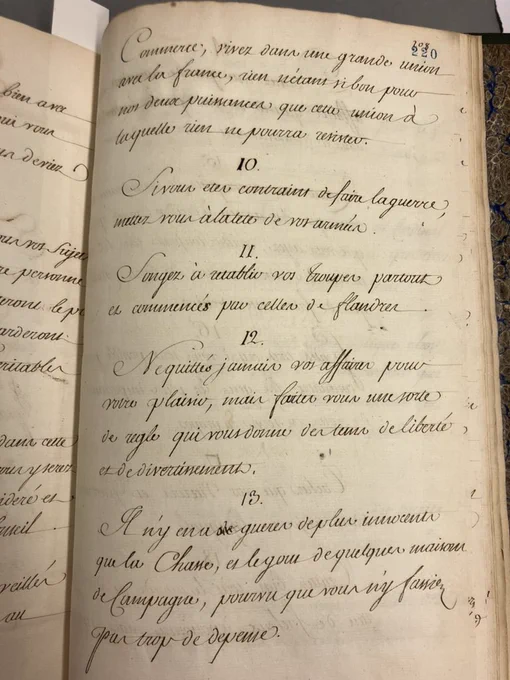 bien ave
qui vous
un deviez
vos Sujets
personne
arderone
eritables
dans cette
vous y serez
idéré et
nseil.
rveilles
au
208
220
Commerce, vivez dans une grande union
avec la france, rien n'étant si bon pour
nos deux puissances que cette union à
laquelle rien ne pourra resister.
10.
Si vous etes contraint de faire la guerre,
mettez vous à la tete de vos armées.
11.
Songez à retablir vos troupes partout
et commencés par celles de flandres.
12.
Ne quittés jamais vos affaires pour
votre plaisir, mais faites vous une sorte
de regle qui vous donne des tems de liberté
et de divertissement.
13.
Il n'y en a gueres de plus innocents
que la Chasse, et le gout de quelques maisons
de Campagne, pourvu que vous n'y fassiez
pas trop de depense.